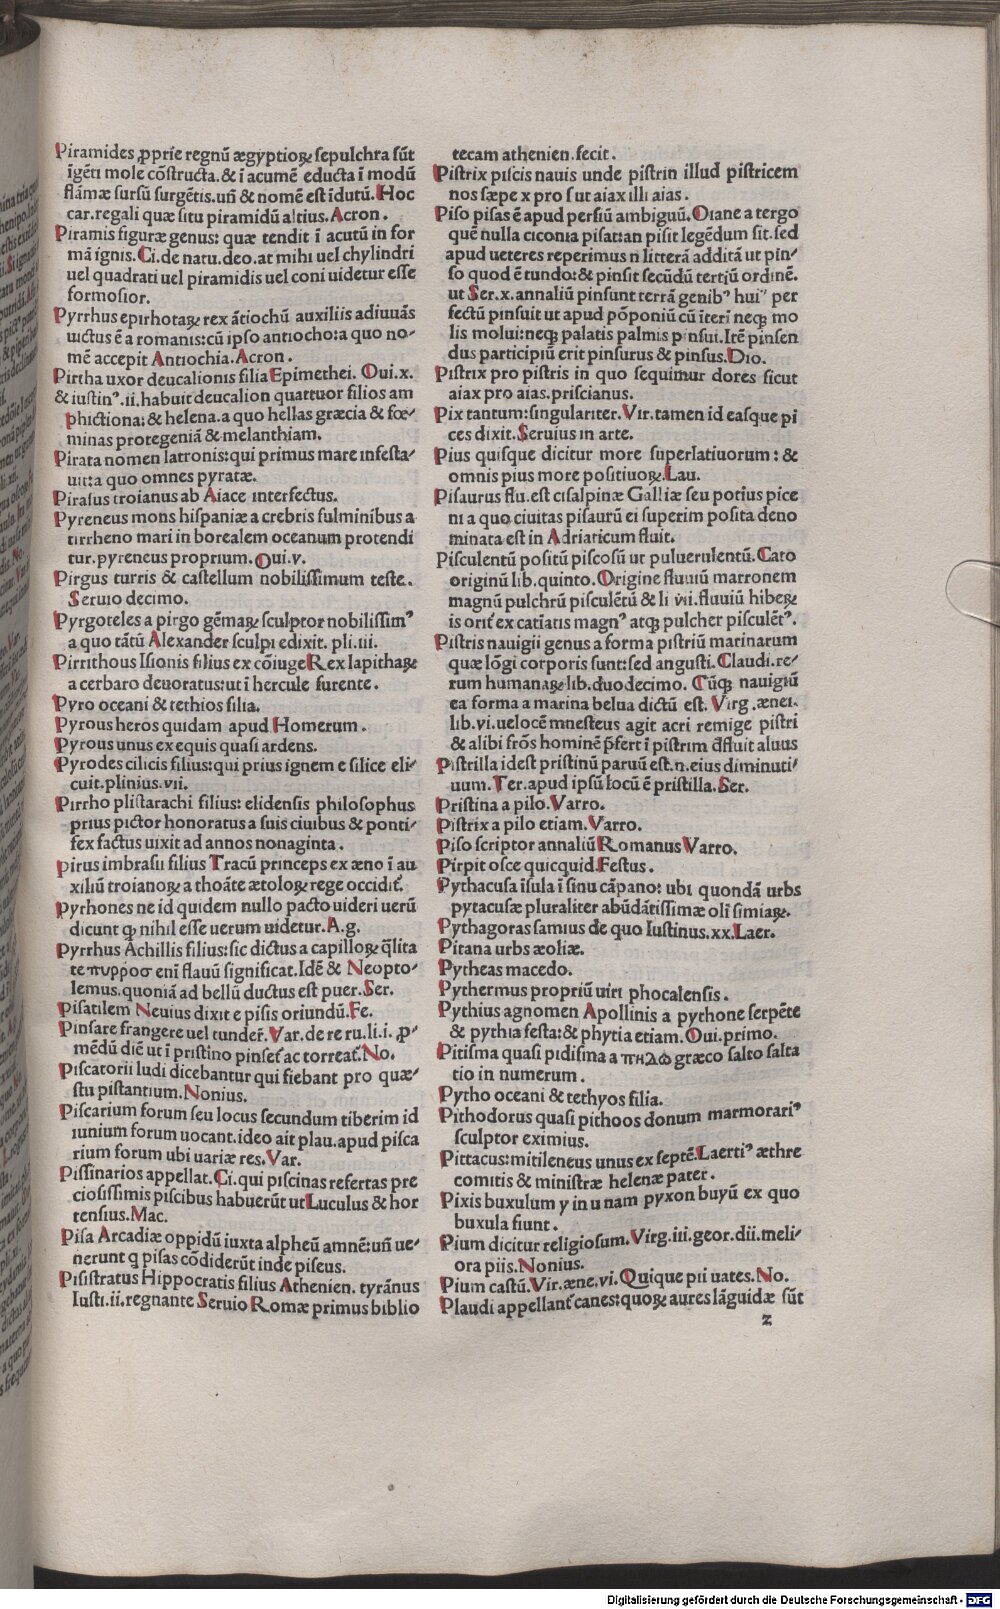 Piramides ꝓprie regnū ægyptioꝝ ſepulchra ſūt
īgēti mole cōſtructa.& ī acumē educta ī modū
flāmæ ſurſū ſurgētis.uñ & nomē eſt īdutū.Hoc
car.regali quæ ſitu piramidū altius.Acron.
Piramis figuræ genus: quæ tendit ī acutū in for
mā ignis.Ci.de natu.deo.at mihi uel chylindri
uel quadrati uel piramidis uel coni uidetur eſſe
formoſior.
Pyrrhus epirhotaꝝ rex ātiochū auxiliis adiuuās
uictus ē a romanis:cū ipſo antiocho:a quo no⸗
mē accepit Antiochia.Acron.
Pirrha uxor deucalionis filia Epimethei. Oui.x.
& iuſtinꝰ.ii.habuit deucalion quattuor filios am
phictiona: & helena.a quo hellas græcia & fœ⸗
minas protegeniā & melanthiam.
Pirata nomen latronis:qui primus mare infeſta⸗
uit:a quo omnes pyratæ.
Piraſus troianus ab Aiace interfectus.
Pyreneus mons hiſpaniæ a crebris fulminibus a
tirrheno mari in borealem oceanum protendi
tur.pyreneus proprium.Oui.v.
Pirgus turris & caſtellum nobiliſſimum teſte.
Seruio decimo.
Pyrgoteles a pirgo gēmaꝝ ſculptor nobiliſſimꝰ
a quo tātū Alexander ſculpi edixit. pli.iii.
Pirrithous Iſionis filius ex cōiuge Rex lapithaꝝ
a cerbaro deuoratus:ut ī hercule furente.
Pyro oceani & tethios filia.
Pyrous heros quidam apud Homerum.
Pyrous unus ex equis quaſi ardens.
Pyrodes cilicis filius:qui prius ignem e ſilice eli⸗
cuit.plinius.vii.
Pirrho pliſtarachi filius: elidenſis philoſophus
prius pictor honoratus a ſuis ciuibus & ponti⸗
fex factus uixit ad annos nonaginta.
Pirus imbraſii filius Tracū princeps ex æno ī au
xiliū troianoꝝ a thoāte ætoloꝝ rege occidiť.
Pyrhones ne id quidem nullo pacto uideri uerū
dicunt ꝙ nihil eſſe uerum uidetur.A.g.
Pyrrhus Achillis filius:ſic dictus a capilloꝝ q̄lita
te πυρροσ enī flauū ſignificat.Idē & Neopto⸗
lemus.quoniā ad bellū ductus eſt puer.Ser.
Piſatilem Neuius dixit e piſis oriundū.Fe.
Pinſare frangere uel tunder̃.Var.de re ru.li.i.ꝓ⸗
mēdū diē ut ī priſtino pinſeť ac torreať.No.
Piſcatorii ludi dicebantur qui fiebant pro quæ⸗
ſtu piſtantium.Nonius.
Piſcarium forum ſeu locus ſecundum tiberim id
iunium forum uocant.ideo ait plau.apud piſca
rium forum ubi uariæ res.Var.
Piſſinarios appellat.Ci.qui piſcinas refertas pre
cioſiſſimis piſcibus habuerūt ut Luculus & hor
tenſius.Mac.
Piſa Arcadiæ oppidū iuxta alpheū amnē:uñ ue⸗
nerunt q piſas cōdiderūt inde piſeus.
Piſiſtratus Hippocratis filius Athenien. tyrānus
Iuſti.ii.regnante Seruio Romæ primus biblio
tecam athenien.fecit.
Piſtrix piſcis nauis unde piſtrin illud piſtricem
nos ſæpe x pro ſ ut aiax illi aias.
Piſo piſas ē apud perſiū ambiguū.O iane a tergo
quē nulla ciconia piſat:an piſit legēdum ſit.ſed
apud ueteres reperimus n litterā additā ut pin⸗
ſo quod ē tundo:& pinſit ſecūdū tertiū ordinē.
ut Ser.x.annaliū pinſunt terrā genibꝰ huiꝰ per
fectū pinſuit ut apud pōponiū cū iteri neqꝫ mo
lis molui:neqꝫ palatis palmis pinſui.Itē pinſen
dus participiū erit pinſurus & pinſus.Dio.
Piſtrix pro piſtris in quo ſequimur dores ſicut
aiax pro aias.priſcianus.
Pix tantum:ſingulariter.Vir.tamen id eaſque pi
ces dixit.Seruius in arte.
Pius quiſque dicitur more ſuperlatiuorum: &
omnis pius more poſitiuoꝝ.Lau.
Piſaurus flu.eſt ciſalpinæ Galliæ ſeu potius pice
ni a quo ciuitas piſaurū ei ſuperim poſita deno
minata eſt in Adriaticum fluit.
Piſculentū poſitū piſcoſū ut puluerulentū.Cato
originū lib.quinto.Origine fluuiū marronem
magnū pulchrū piſculētū & li vii.fluuiū hibeꝝ
is oriť ex catiatis magnꝰ atqꝫ pulcher piſculētꝰ.
Piſtris nauigii genus a forma piſtriū marinarum
quæ lōgi corporis ſunt:ſed anguſti.Claudi.re⸗
rum humanaꝝ lib.duodecimo. Cūqꝫ nauigiū
ea forma a marina belua dictū eſt. Virg.ænei.
lib.vi.uelocē mneſteus agit acri remige piſtri
& alibi frōs hominē p̄fert ī piſtrim d̄fluit aluus
Piſtrilla ideſt priſtinū paruū eſt.n.eius diminuti⸗
uum.Ter.apud ipſū locū ē priſtilla.Ser.
Priſtina a pilo.Varro.
Piſtrix a pilo etiam.Varro.
Piſo ſcriptor annaliū Romanus Varro.
Pirpit oſce quicquid.Feſtus.
Pythacuſa īſula ī ſinu cāpano: ubi quondā urbs
pytacuſæ pluraliter abūdātiſſimæ olī ſimiaꝝ.
Pythagoras ſamius de quo Iuſtinus.xx.Laer.
Pitana urbs æoliæ.
Pytheas macedo.
Pythermus propriū uiri phocalenſis.
Pythius agnomen Apollinis a pythone ſerpēte
& pythia feſta:& phytia etiam.Oui.primo.
Pitiſma quaſi pidiſma a πηδω græco ſalto ſalta
tio in numerum.
Pytho oceani & tethyos filia.
Pithodorus quaſi pithoos donum marmorariꝰ
ſculptor eximius.
Pittacus:mitileneus unus ex ſeptē.Laertiꝰ æthre
comitis & miniſtræ helenæ pater.
Pixis buxulum y in u nam pyxon buyū ex quo
buxula fiunt.
Pium dicitur religioſum.Virg.iii.geor.dii.meli⸗
ora piis.Nonius.
Pium caſtū.Vir.æne.vi.Quique pii uates.No.
Plaudi appellanť canes:quoꝝ aures lāguidæ ſūt
z
Digitalisierung gefördert durch die Deutsche Forschungsgemeinschaft - DFG